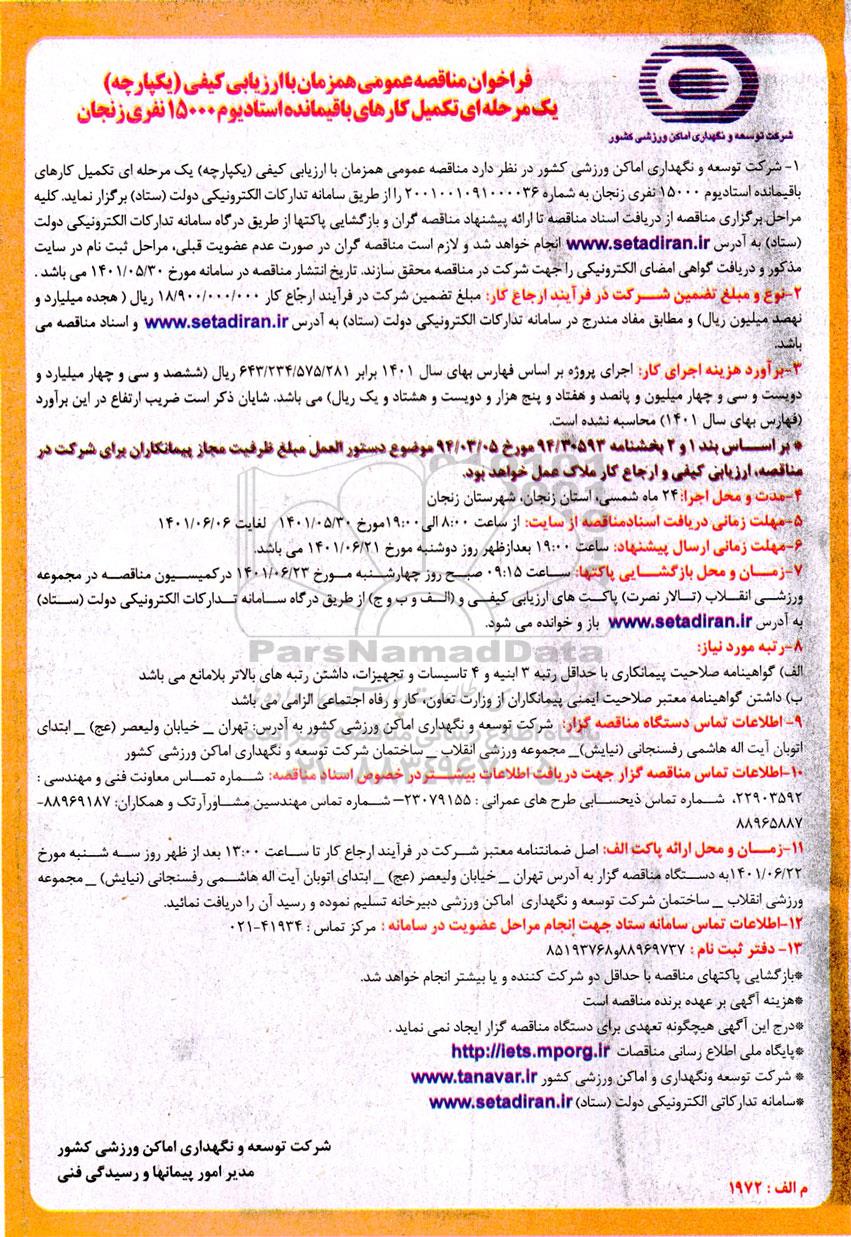 فراخوان مناقصه عمومی همزمان با ارزیابی کیفی (یکپارچه)
یک مرحله ای تکمیل کارهای باقیمانده استادیوم ۱۵۰۰۰ نفری زنجان
شرکت توسعه و نگهداری اماکن ورزشی کشور
۱- شرکت توسعه و نگهداری اماکن ورزشی کشور در نظر دارد مناقصه عمومی همزمان با ارزیابی کیفی (یکپارچه) یک مرحله ای تکمیل کارهای
باقیمانده استادیوم ۱۵۰۰۰ نفری زنجان به شماره ۲۰۰۱۰۰۱۰۹۱۰۰۰۰۳۶ را از طریق سامانه تدارکات الکترونیکی دولت (ستاد) برگزار نماید. کلیه
مراحل برگزاری مناقصه از دریافت اسناد مناقصه تا ارائه پیشنهاد مناقصه گران و بازگشایی پاکتها از طریق درگاه سامانه تدارکات الکترونیکی دولت
(ستاد) به آدرس www.setadiran.ir انجام خواهد شد و لازم است مناقصه گران در صورت عدم عضویت قبلی، مراحل ثبت نام در سایت
مذکور و دریافت گواهی امضای الکترونیکی را جهت شرکت در مناقصه محقق سازند. تاریخ انتشار مناقصه در سامانه مورخ ۱۴۰۱/۰۵/۳۰ می باشد .
۲-نوع و مبلغ تضمین شرکت در فرآیند ارجاع کار: مبلغ تضمین شرکت در فرآیند ارجاع کار ۱۸/۹۰۰/۰۰۰/۰۰۰ ریال ( هجده میلیارد و
نهصد میلیون ریال) و مطابق مفاد مندرج در سامانه تدارکات الکترونیکی دولت (ستاد) به آدرس www.setadiran.ir و اسناد مناقصه می
باشد.
۳-برآورد هزینه اجرای کار: اجرای پروژه بر اساس فهارس بهای سال ۱۴۰۱ برابر ۶۴۳/۲۳۴/۵۷۵/۲۸۱ ریال (ششصد و سی و چهار میلیارد و
دویست و سی و چهار میلیون و پانصد و هفتاد و پنج هزار و دویست و هشتاد و یک ریال) می باشد. شایان ذکر است ضریب ارتفاع در این برآورد
(فهارس بهای سال ۱۴۰۱) محاسبه نشده است.
* بر اساس بند ۱ و ۲ بخشنامه ۹۴/۳۰۵۹۳ مورخ ۹۴/۰۳/۰۵ موضوع دستور العمل مبلغ ظرفیت مجاز پیمانکاران برای شرکت در
مناقصه، ارزیابی کیفی و ارجاع کار ملاک عمل خواهد بود.
۴-مدت و محل اجرا: ۲۴ ماه شمسی، استان زنجان، شهرستان زنجان
۵-مهلت زمانی دریافت اسنادمناقصه از سایت: از ساعت ۸:۰۰ الی ۱۹:۰۰مورخ ۱۴۰۱/۰۵/۳۰ لغایت ۱۴۰۱/۰۶/۰۶
۶-مهلت زمانی ارسال پیشنهاد: ساعت ۱۹:۰۰ بعدازظهر روز دوشنبه مورخ ۱۴۰۱/۰۶/۲۱ می باشد.
۷-زمان و محل بازگشایی پاکتها: ساعت ۰۹:۱۵ صبح روز چهارشنبه مورخ ۱۴۰۱/۰۶/۲۳ درکمیسیون مناقصه در مجموعه
ورزشی انقلاب (تالار نصرت) پاکت های ارزیابی کیفی و (الف و ب و ج) از طریق درگاه سامانه تدارکات الکترونیکی دولت (ستاد)
به آدرس www.setadiran.ir باز و خوانده می شود.
ParsNamadData
۸-رتبه مورد نیاز:
الف) گواهینامه صلاحیت پیمانکاری با حداقل رتبه ۳ ابنیه و ۴ تاسیسات و تجهیزات، داشتن رتبه های بالاتر بلامانع می باشد
ب) داشتن گواهینامه معتبر صلاحیت ایمنی پیمانکاران از وزارت تعاون، کار و رفاه اجتماعی الزامی می باشد
۹- اطلاعات تماس دستگاه مناقصه گزار: شرکت توسعه و نگهداری اماکن ورزشی کشور به آدرس: تهران _ خیابان ولیعصر (عج) _ ابتدای
اتوبان آیت اله هاشمی رفسنجانی (نیایش)_ مجموعه ورزشی انقلاب _ ساختمان شرکت توسعه و نگهداری اماکن ورزشی کشور
۱۰-اطلاعات تماس مناقصه گزار جهت دریافت اطلاعات بیشتر در خصوص اسناد مناقصه: شماره تماس معاونت فنی و مهندسی :
۲۲۹۰۳۵۹۲، شماره تماس ذیحسابی طرح های عمرانی : ۲۳۰۷۹۱۵۵– شماره تماس مهندسین مشاورآرتک و همکاران: ۸۸۹۶۹۱۸۷-
۸۸۹۶۵۸۸۷
۱۱-زمان و محل ارائه پاکت الف: اصل ضمانتنامه معتبر شرکت در فرآیند ارجاع کار تا ساعت ۱۳:۰۰ بعد از ظهر روز سه شنبه مورخ
۱۴۰۱/۰۶/۲۲به دستگاه مناقصه گزار به آدرس تهران _ خیابان ولیعصر (عج) _ ابتدای اتوبان آیت اله هاشمی رفسنجانی (نیایش) _ مجموعه
ورزشی انقلاب _ ساختمان شرکت توسعه و نگهداری اماکن ورزشی دبیرخانه تسلیم نموده و رسید آن را دریافت نمائید.
۱۲-اطلاعات تماس سامانه ستاد جهت انجام مراحل عضویت در سامانه : مرکز تماس : ۴۱۹۳۴-۰۲۱
۱۳- دفتر ثبت نام : ۸۸۹۶۹۷۳۷و۸۵۱۹۳۷۶۸
*بازگشایی پاکتهای مناقصه با حداقل دو شرکت کننده و یا بیشتر انجام خواهد شد.
*هزینه آگهی بر عهده برنده مناقصه است
*درج این آگهی هیچگونه تعهدی برای دستگاه مناقصه گزار ایجاد نمی نماید .
*پایگاه ملی اطلاع رسانی مناقصات http://iets.mporg.ir
* شرکت توسعه ونگهداری و اماکن ورزشی کشور www.tanavar.ir
*سامانه تدارکاتی الکترونیکی دولت (ستاد) www.setadiran.ir
شرکت توسعه و نگهداری اماکن ورزشی کشور
مدیر امور پیمانها و رسیدگی فنی
م الف : ۱۹۷۲